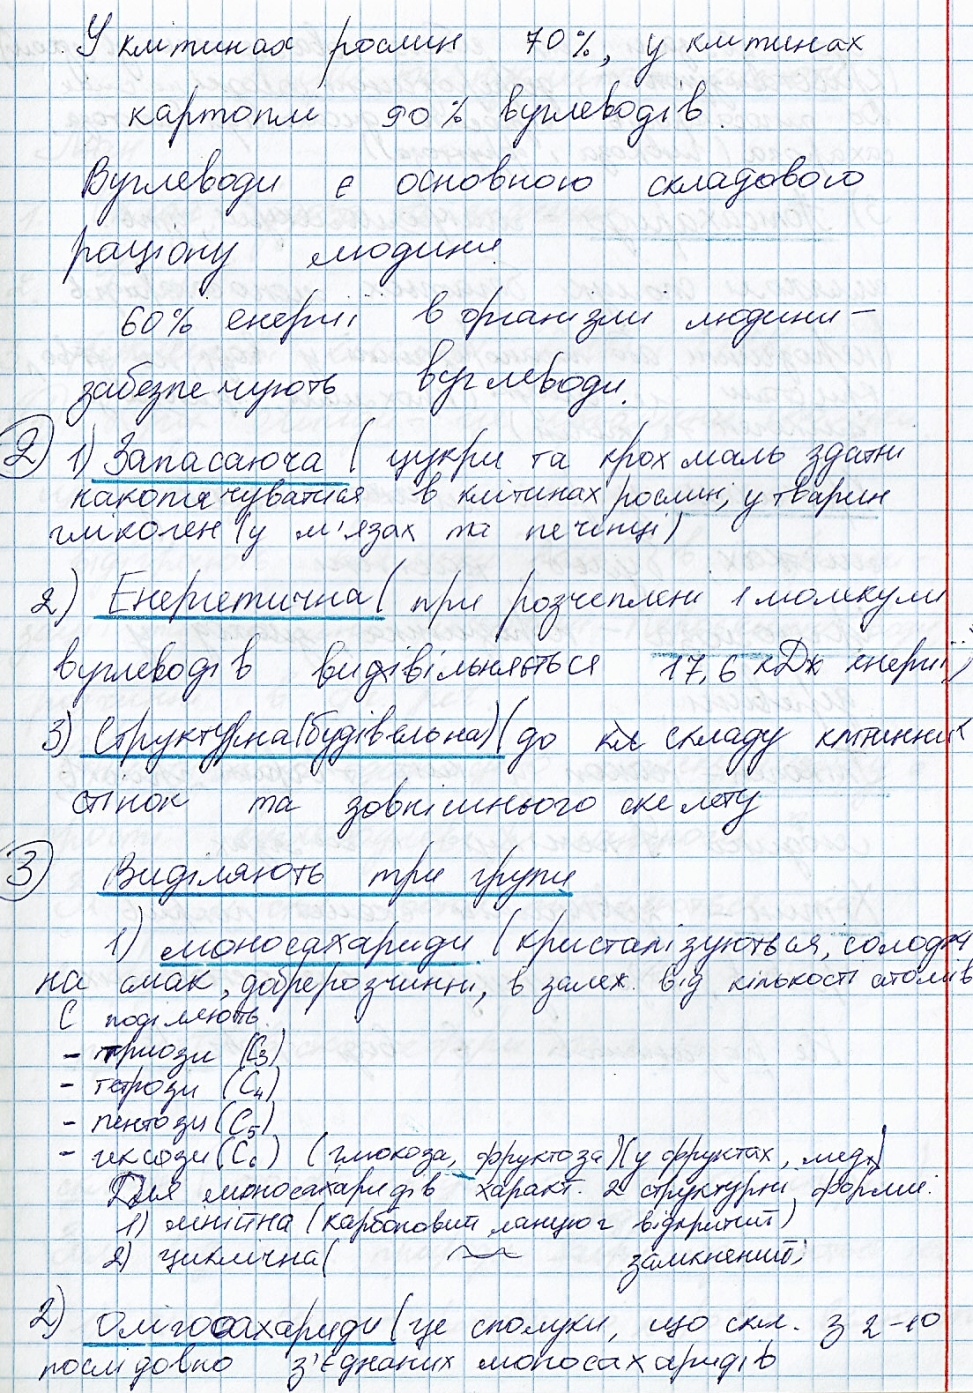 У клітинах рослин 70%, у клітинах
картоплі 90% вуглеводів.
Вуглеводи є основною складового
раціону людини.
60% енергії в організмі людини –
забезпечують вуглеводи.
2) 1) Запасаюча ( цукри та крохмаль здатні
накопичуватися в клітинах рослин; у тварин
глікоген (у м'язах та печінці)
2) Енергетична ( при розчеплені 1 молекули
вуглеводів видівільняється 17,6 кДж енергії)
3) Структурна (будівельна) ( до складу клітинних
стінок та зовнішнього скелету
3) Виділяють три групи
1) моносахариди (кристалізуються, солодкі
на смак, добрерозчинні, в залеж. від кількості атомів
С поділяють.
- тріози (C3)
- тетрози (C4)
- пентози (C5)
- гексози (C6) (глюкоза, фруктоза) (у фруктах, меді)
Для моносахаридів характ. 2 структурні форми:
1) лінійна (карбоновий ланцюг відкритий)
2) циклічна ( ~ замкнений)
2) Олігосахариди (це сполуки, що скл. з 2-10
послідовно з'єднаних моносахаридів